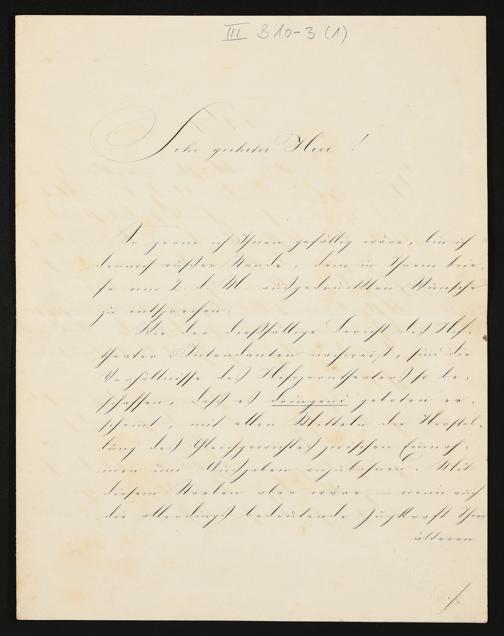 III B 10-3 (1)
Sehr geehrter Herr !
So gerne ich Ihnen gefällig wäre, bin ich
dennoch außer Stande, dem in Ihrem Brie-
fe vom 2. d. M. ausgedrückten Wunsche
zu entsprechen.
Wie der dießfällige Bericht des Hof-
theater Intendanten nachweist, sind die
Verhältnisse des Hofoperntheaters so be-
schaffen, daß es dringend geboten er-
scheint, mit allen Mitteln die Herstel-
lung des Gleichgewichtes zwischen Einnah-
men und Ausgaben anzubahnen. Mit
diesem Streben aber wäre – wenn auch
die allerdings bedeutende Zugkraft Ihrer
älteren
./.